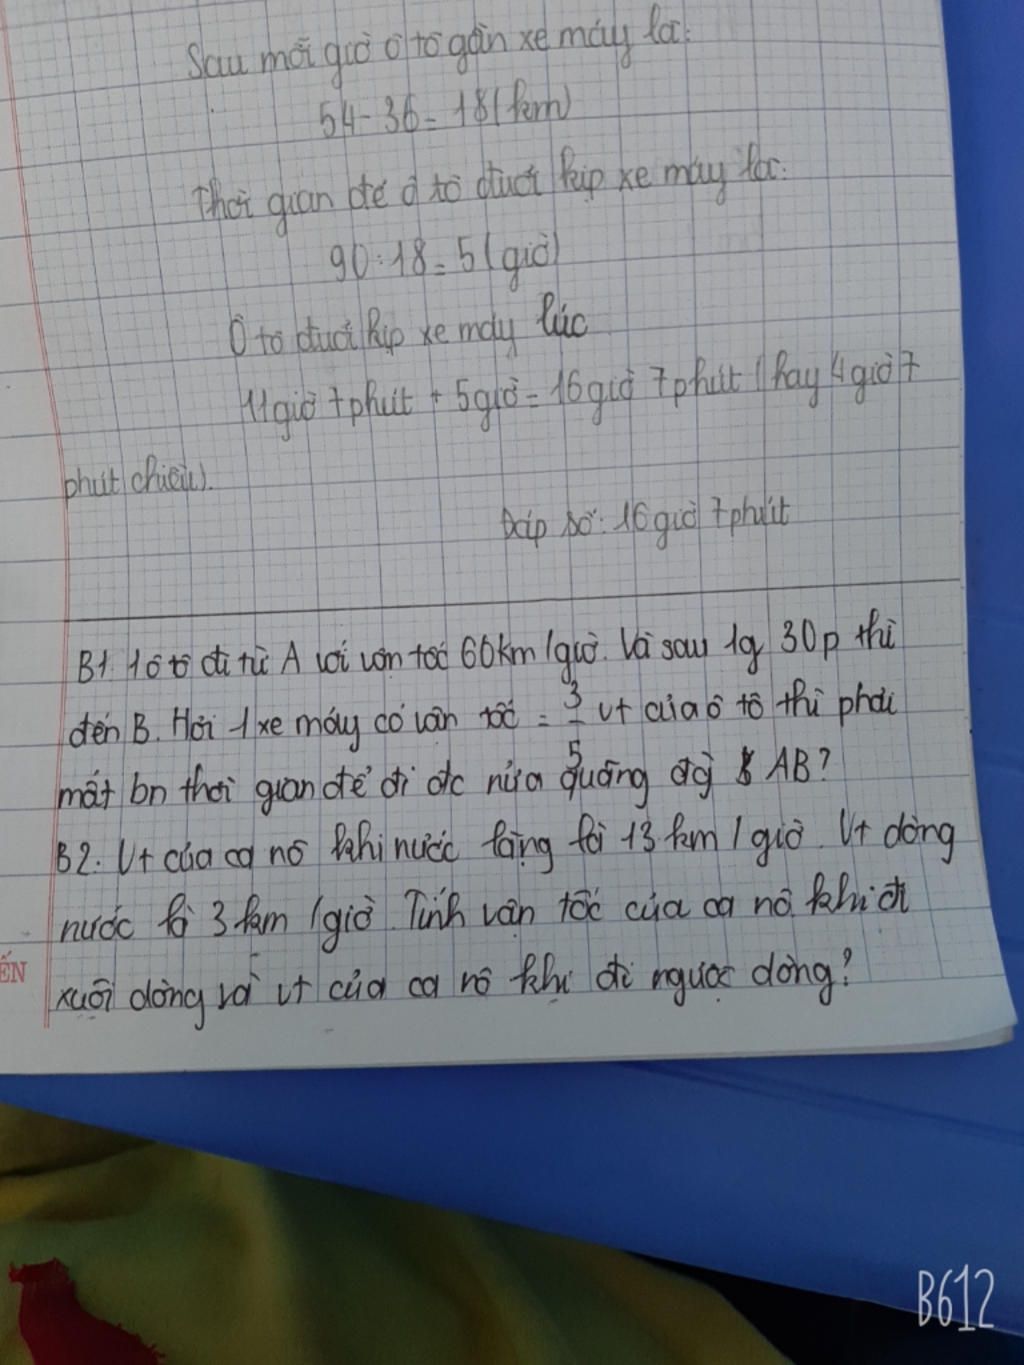 Sau mỗi giờ ô tô gần xe máy là:
54 - 36 = 18 (km)
Thời gian để ô tô đuổi kịp xe máy là:
90 : 18 = 5 (giờ)
Ô tô đuổi kịp xe máy lúc
11 giờ 7 phút + 5 giờ = 16 giờ 7 phút (hay 4 giờ 7
phút chiều).
Đáp số: 16 giờ 7 phút
B1. 1 ô tô đi từ A với vận tốc 60km/giờ. Và sau 1g 30p thì
đến B. Hỏi 1 xe máy có vận tốc = 3/5 vt của ô tô thì phải
mất bn thời gian để đi đc nửa quãng đg AB?
B2. Vt của ca nô khi nước lặng là 13 km/giờ. Vt dòng
nước là 3 km/giờ. Tính vận tốc của ca nô khi đi
xuôi dòng và vt của ca nô khi đi ngược dòng?
ẾN
B612